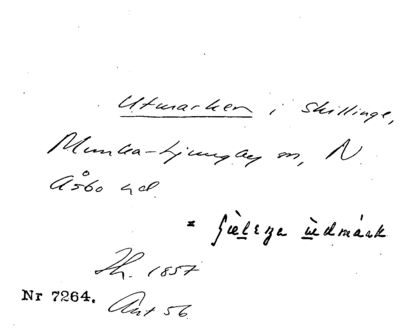 Utmarken i Skillinge,
Munka-Ljungby sn, N
Åsbo hd.
= ùdmárk
Th. 1857
Nr 7264. Ant 56